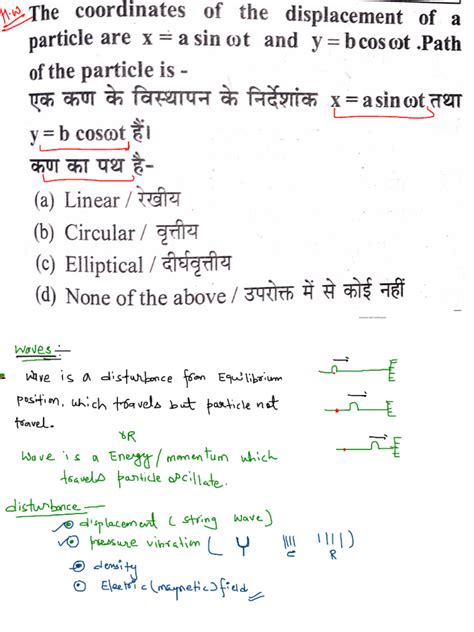 H.W. The coordinates of the displacement of a
particle are x = a sin ωt and y = b cos ωt .Path
of the particle is -
एक कण के विस्थापन के निर्देशांक x = a sin ωt तथा
y = b cosωt हैं।
कण का पथ है-
(a) Linear / रेखीय
(b) Circular / वृत्तीय
(c) Elliptical / दीर्घवृत्तीय
(d) None of the above / उपरोक्त में से कोई नहीं
Waves :-
Wave is a disturbance from Equilibrium
position, which travels but particle not
travel.
OR
Wave is a Energy/momentum which
travels particle oscillate.
disturbance —
displacement (string wave)
pressure vibration (
C R )
density
Electric (magnetic) field